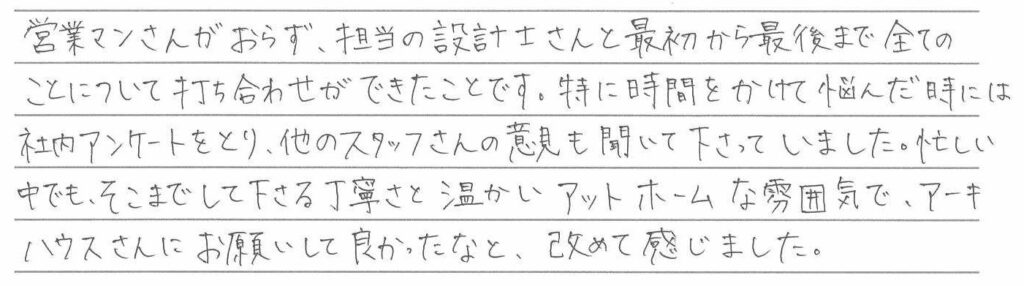 営業マンさんがおらず、担当の設計士さんと最初から最後まで全ての
ことについて打ち合わせができたことです。特に時間をかけて悩んだ時には
社内アンケートをとり、他のスタッフさんの意見も聞いて下さっていました。忙しい
中でも、そこまでして下さる丁寧さと温かいアットホームな雰囲気で、アーキ
ハウスさんにお願いして良かったなと、改めて感じました。